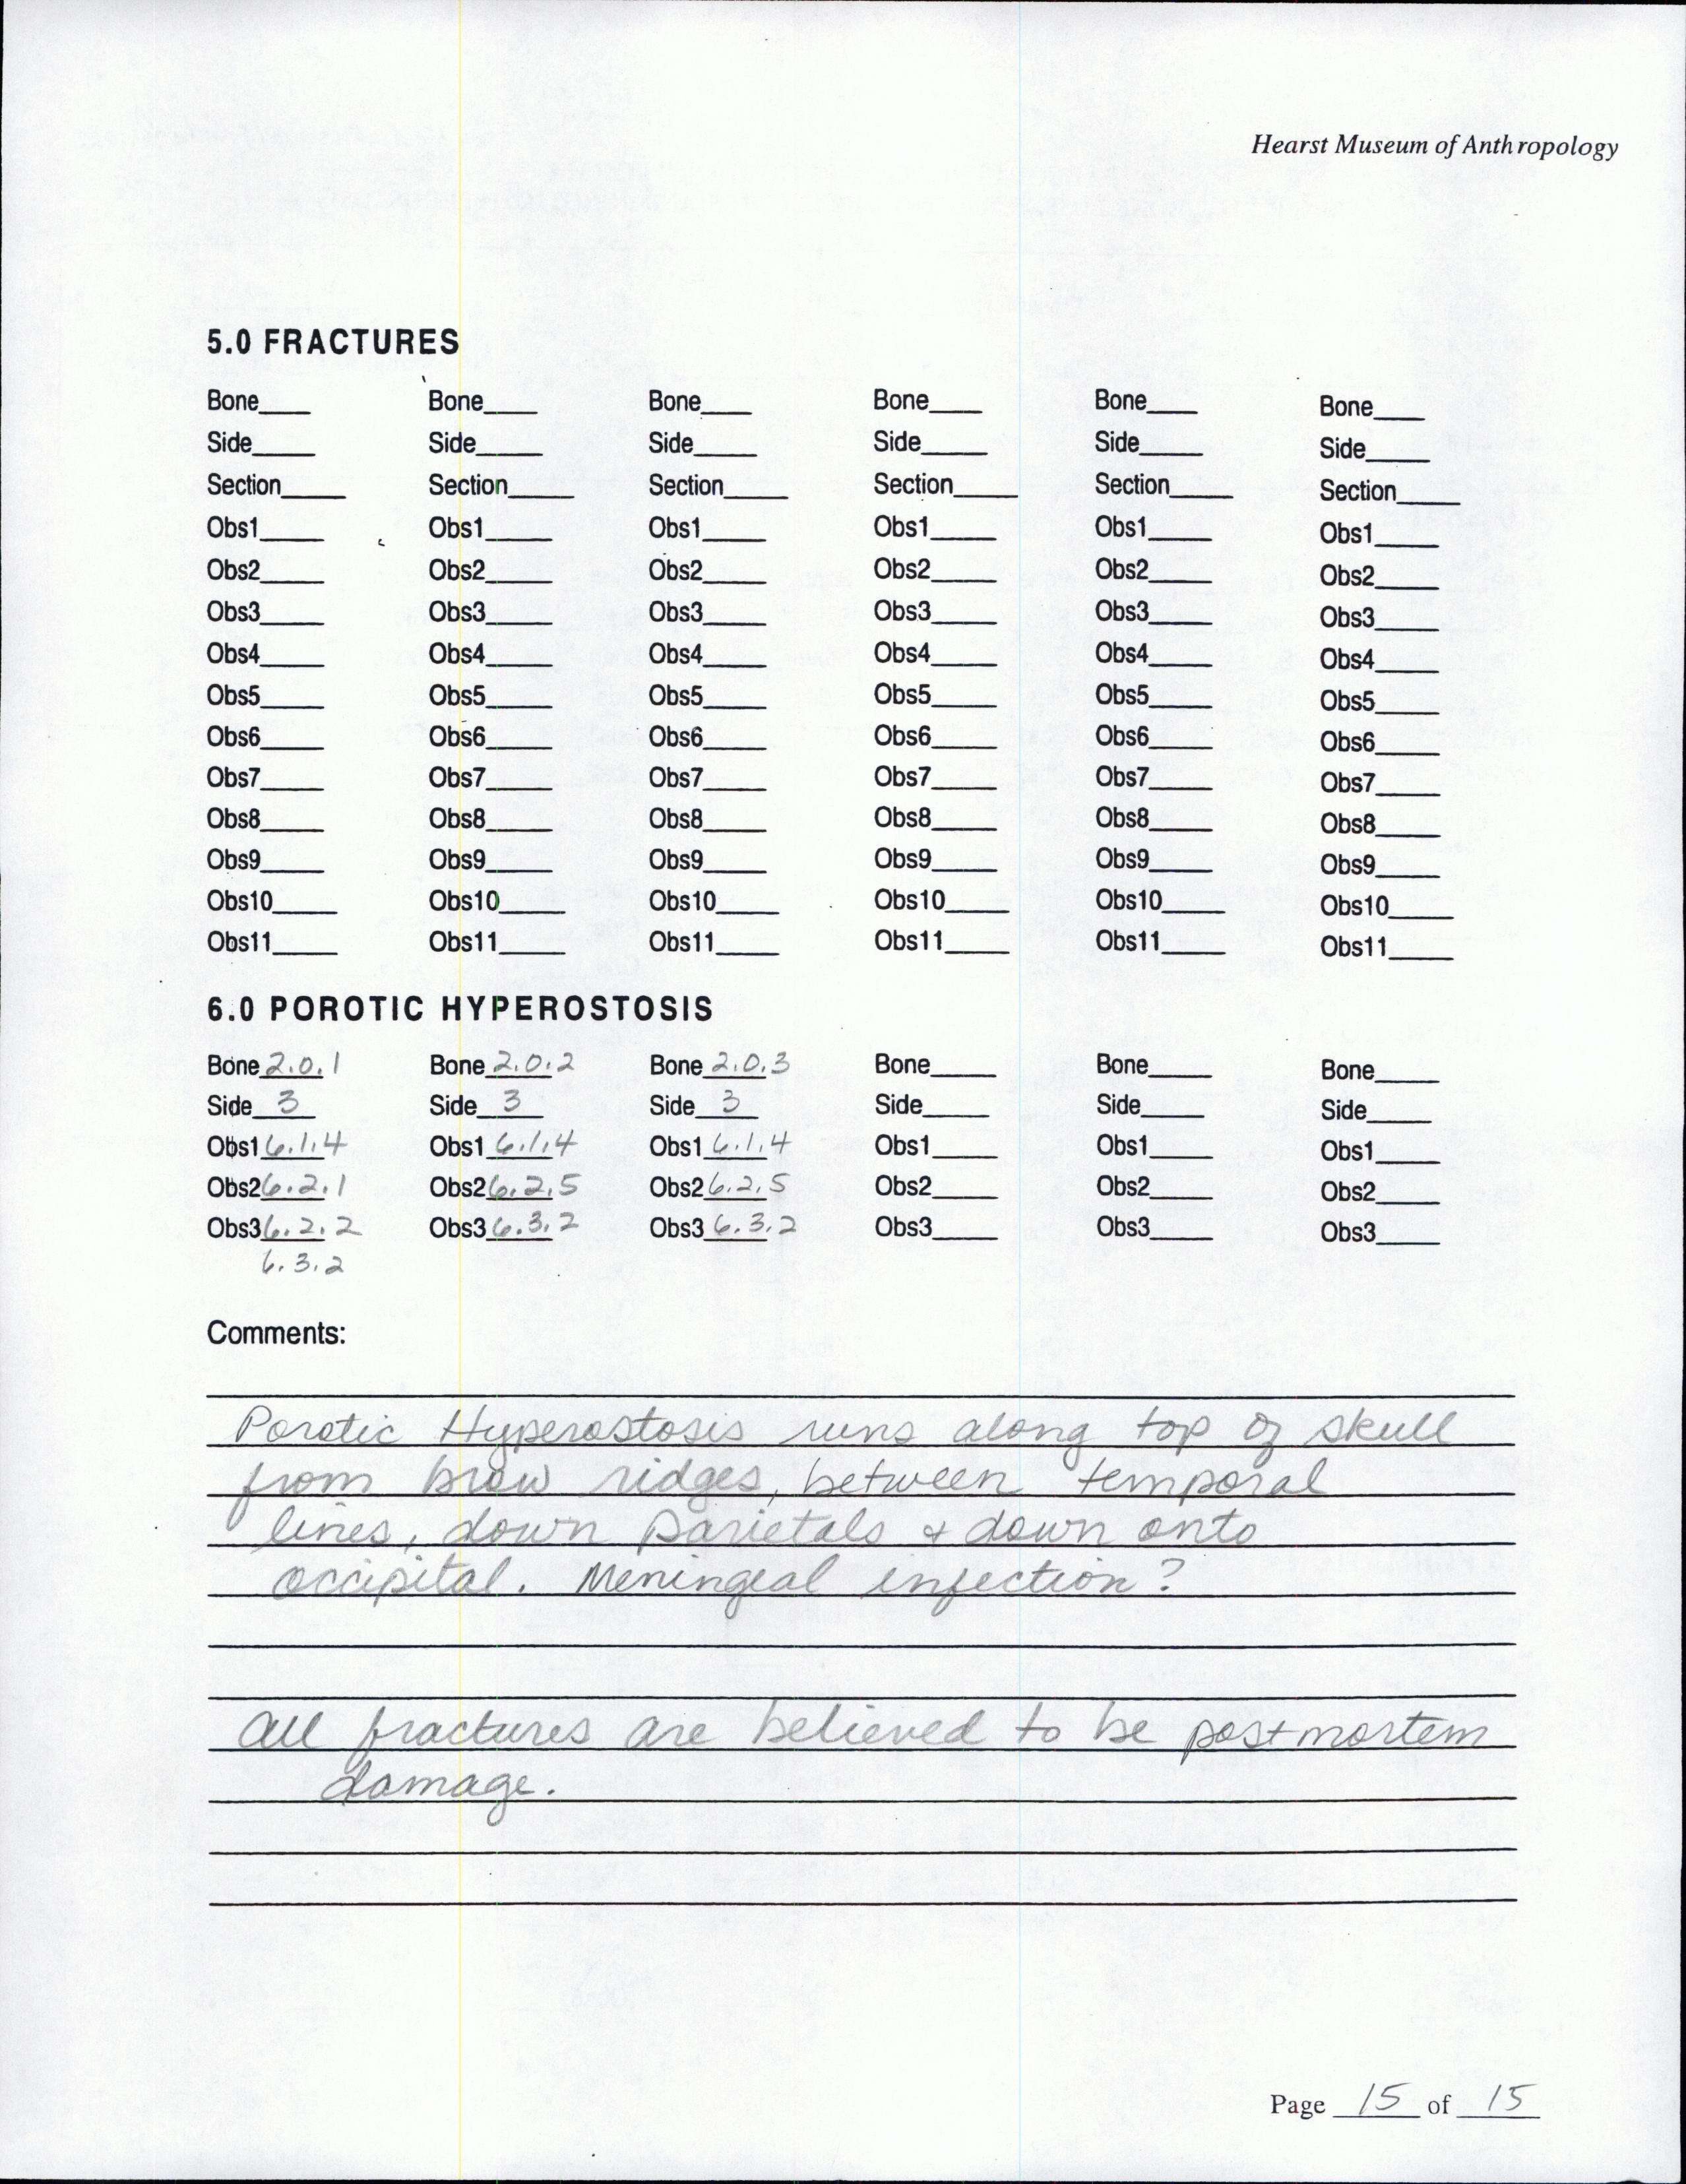 Hearst Museum of Anthropology
5.0 FRACTURES
Bone____ Bone____ Bone____ Bone____ Bone____ Bone____
Side____ Side____ Side____ Side____ Side____ Side____
Section____ Section____ Section____ Section____ Section____ Section____
Obs1____ Obs1____ Obs1____ Obs1____ Obs1____ Obs1____
Obs2____ Obs2____ Obs2____ Obs2____ Obs2____ Obs2____
Obs3____ Obs3____ Obs3____ Obs3____ Obs3____ Obs3____
Obs4____ Obs4____ Obs4____ Obs4____ Obs4____ Obs4____
Obs5____ Obs5____ Obs5____ Obs5____ Obs5____ Obs5____
Obs6____ Obs6____ Obs6____ Obs6____ Obs6____ Obs6____
Obs7____ Obs7____ Obs7____ Obs7____ Obs7____ Obs7____
Obs8____ Obs8____ Obs8____ Obs8____ Obs8____ Obs8____
Obs9____ Obs9____ Obs9____ Obs9____ Obs9____ Obs9____
Obs10____ Obs10____ Obs10____ Obs10____ Obs10____ Obs10____
Obs11____ Obs11____ Obs11____ Obs11____ Obs11____ Obs11____
6.0 POROTIC HYPEROSTOSIS
Bone 2.0.1 Bone 2.0.2 Bone 2.0.3 Bone____ Bone____ Bone____
Side 3 Side 3 Side 3 Side____ Side____ Side____
Obs1 6.1.4 Obs1 6.1.4 Obs1 6.1.4 Obs1____ Obs1____ Obs1____
Obs2 6.2.1 Obs2 6.2.5 Obs2 6.2.5 Obs2____ Obs2____ Obs2____
Obs3 6.2.2 Obs3 6.3.2 Obs3 6.3.2 Obs3____ Obs3____ Obs3____
6.3.2
Comments:
Porotic Hyperostosis runs along top of skull
from brow ridges, between temporal
lines, down parietals & down onto
occipital. Meningeal infection?
All fractures are believed to be postmortem
damage.
Page 15 of 15